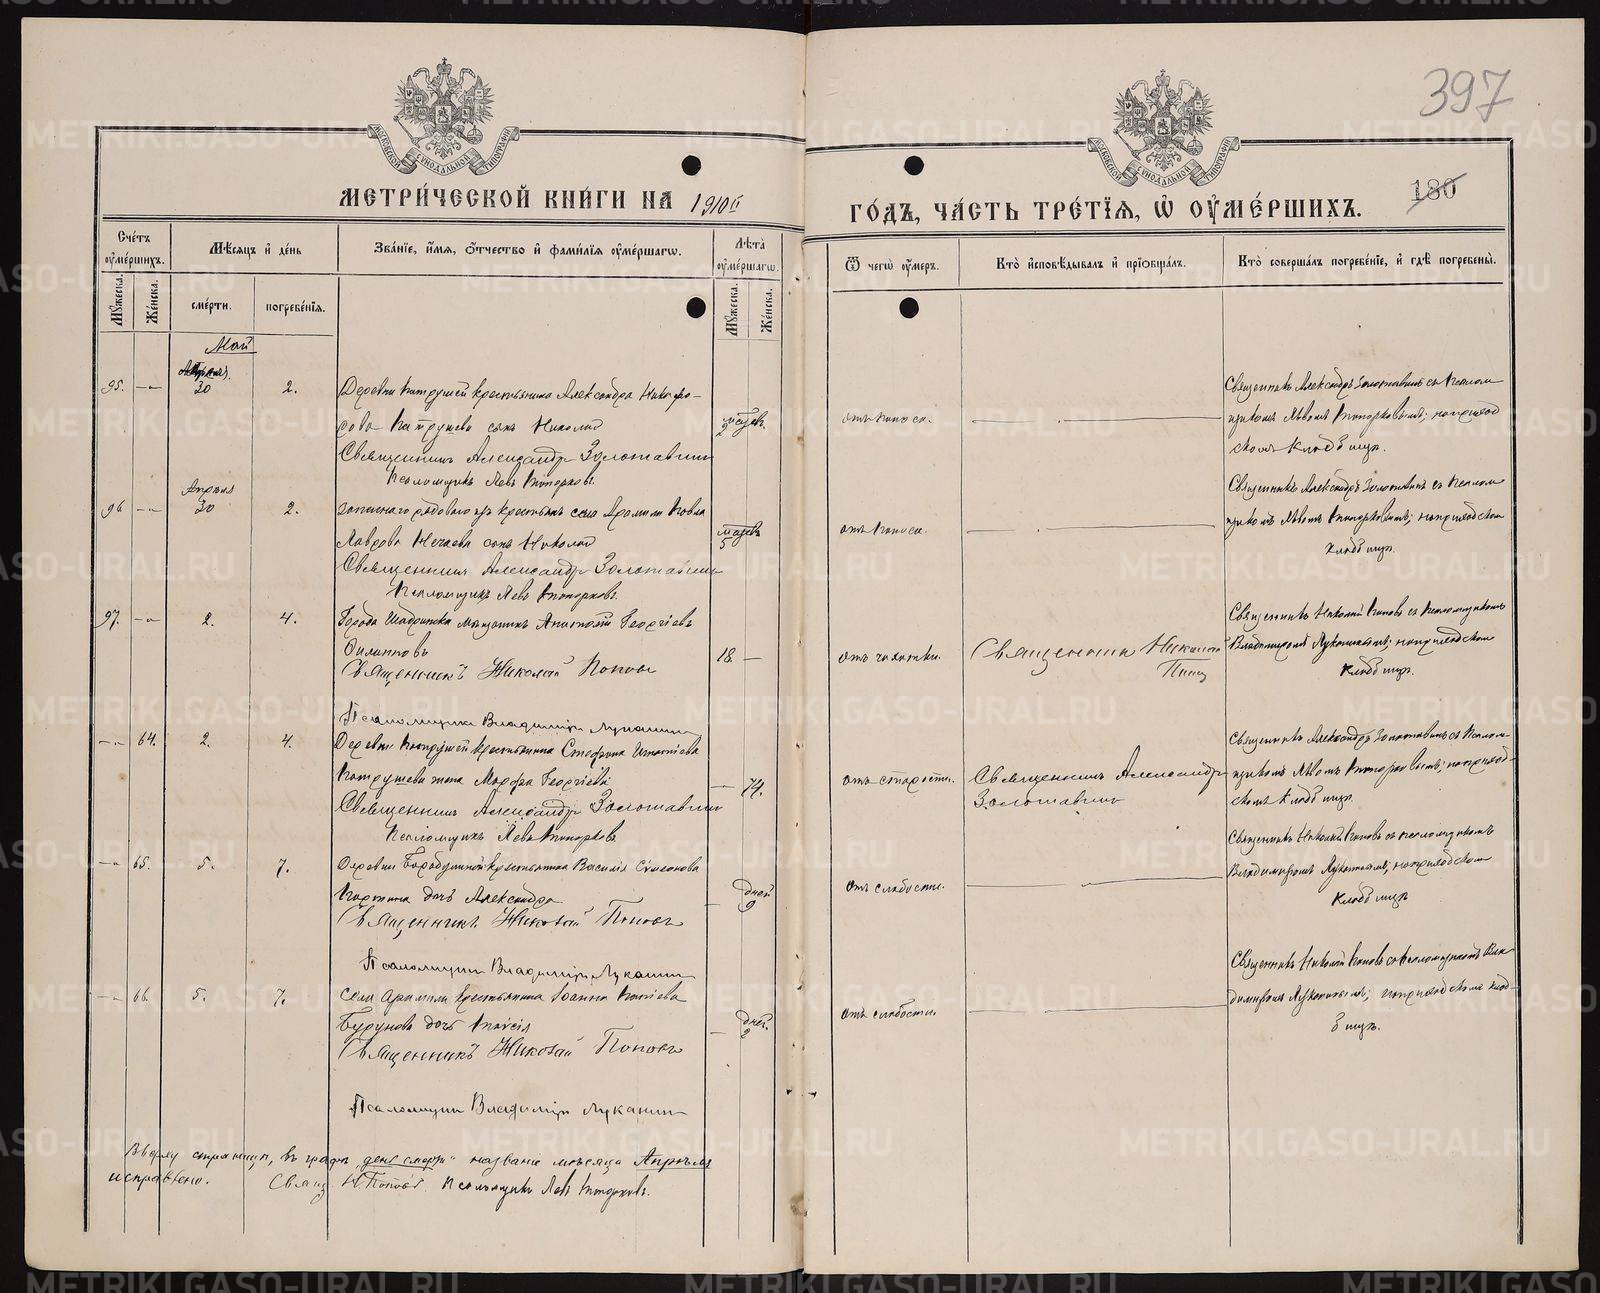 397
180
МЕТРИ́ЧЕСКОЙ КНИ́ГИ НА 1910 й
ГО́ДЪ, ЧА́СТЬ ТРЕ́ТІЯ, Ѡ҆ ОУ҆МЕ́РШИХЪ.
Сче́тъ оу҆ме́ршихъ.
Мꙋ́жеска.
Же́нска.
Мѣ́сяцъ и҆ де́нь
сме́рти.
погребе́нїя.
Зва́нїе, и҆́мя, ѻ҆́тчество и҆ фами́лїя оу҆ме́ршагѡ.
Лѣ́та оу҆ме́ршагѡ.
Мꙋ́жеска.
Же́нска.
Ѿ чегѡ̀ оу҆́меръ.
Кто̀ и҆сповѣ́дывалъ и҆ прїѡбща́лъ.
Кто̀ соверша́лъ погребе́нїе, и҆ гдѣ̀ погребены̀.
Май
Апрѣля.
95. —
30
2.
Деревни Патрушей крестьянина Александра Никифо-
рова Патрушева сынъ Николай
Священникъ Александръ Золотавинъ
Псаломщикъ Левъ
2 мѣсяц.
отъ поноса.
Священникъ Александръ Золотавинъ съ псалом-
щикомъ Львомъ; на приход-
скомъ кладбищѣ.
Апрѣля
96 —
30
2.
запаснаго рядового изъ крестьянъ села Арамили Павла
Нечаева сынъ Николай
Священникъ Александръ Золотавинъ
Псаломщикъ Левъ
5
отъ поноса.
Священникъ Александръ Золотавинъ съ псалом-
щикомъ Львомъ; на приходскомъ
кладбищѣ.
97. —
2.
4.
Города Шадринска мѣщанинъ Анатолій Георгіевъ
Филиповъ
Священникъ Николай Поповъ
Псаломщикъ Владиміръ Луканинъ
18. —
отъ чахотки.
Священникъ Николай
Священникъ Николай Поповъ съ псаломщикомъ
Владиміромъ Луканинымъ; на приходскомъ
кладбищѣ.
— 64.
2.
4.
Деревни Патрушей крестьянина Стефана Игнатіева
Патрушева жена Марѳа Георгіева
Священникъ Александръ Золотавинъ
Псаломщикъ Левъ
— 74.
отъ старости.
Священникъ Александръ
Золотавинъ
Священникъ Александръ Золотавинъ съ псалом-
щикомъ Львомъ; на приход-
скомъ кладбищѣ.
— 65.
5.
7.
Деревни Бородулиной крестьянина Василія Симеонова
дочь Александра
Священникъ Николай Поповъ
Псаломщикъ Владиміръ Луканинъ
— дней 9
отъ слабости.
Священникъ Николай Поповъ съ псаломщикомъ
Владиміромъ Луканинымъ; на приходскомъ
кладбищѣ
— 66.
5.
7.
Села Арамили крестьянина Іоанна
дочь Таисія
Священникъ Николай Поповъ
Псаломщикъ Владиміръ Луканинъ
— дней 2
отъ слабости.
Священникъ Николай Поповъ съ псаломщикомъ Вла-
диміромъ Луканинымъ; на приходскомъ клад-
бищѣ.
Вверху страницы, въ графѣ „день смерти" названіе мѣсяца Апрѣль
исправлено. Свящ. Н. Поповъ. Псаломщикъ Левъ
METRIKI.GASO-URAL.RU